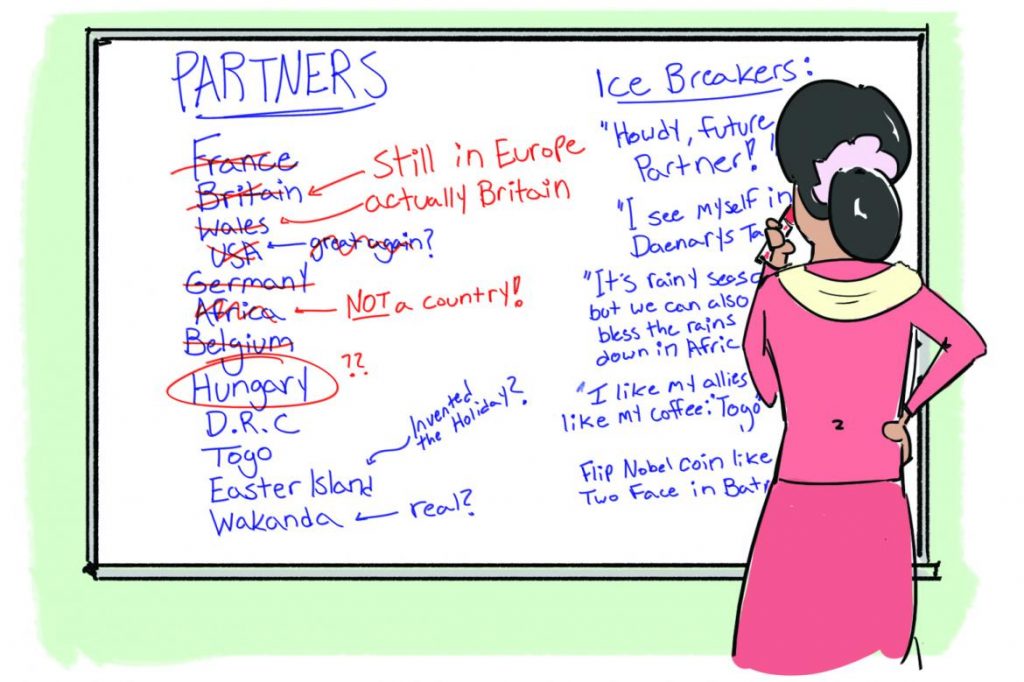 PARTNERS
France
Britain
Still in Europe
Wales
actually Britain
USA
great again?
Germany
Africa
NOT a country!
Belgium
Hungary
??
D.R.C
Togo
Easter Island
Invented
the Holiday?
Wakanda
real?
Ice Breakers:
"Howdy, future
Partner!"
"I see myself in
Daenarys Ta
"It's rainy seaso
but we can also
bless the rains
down in Afric
"I like my allies
like my coffee: "Togo"
Flip Nobel coin like
Two Face in Bat